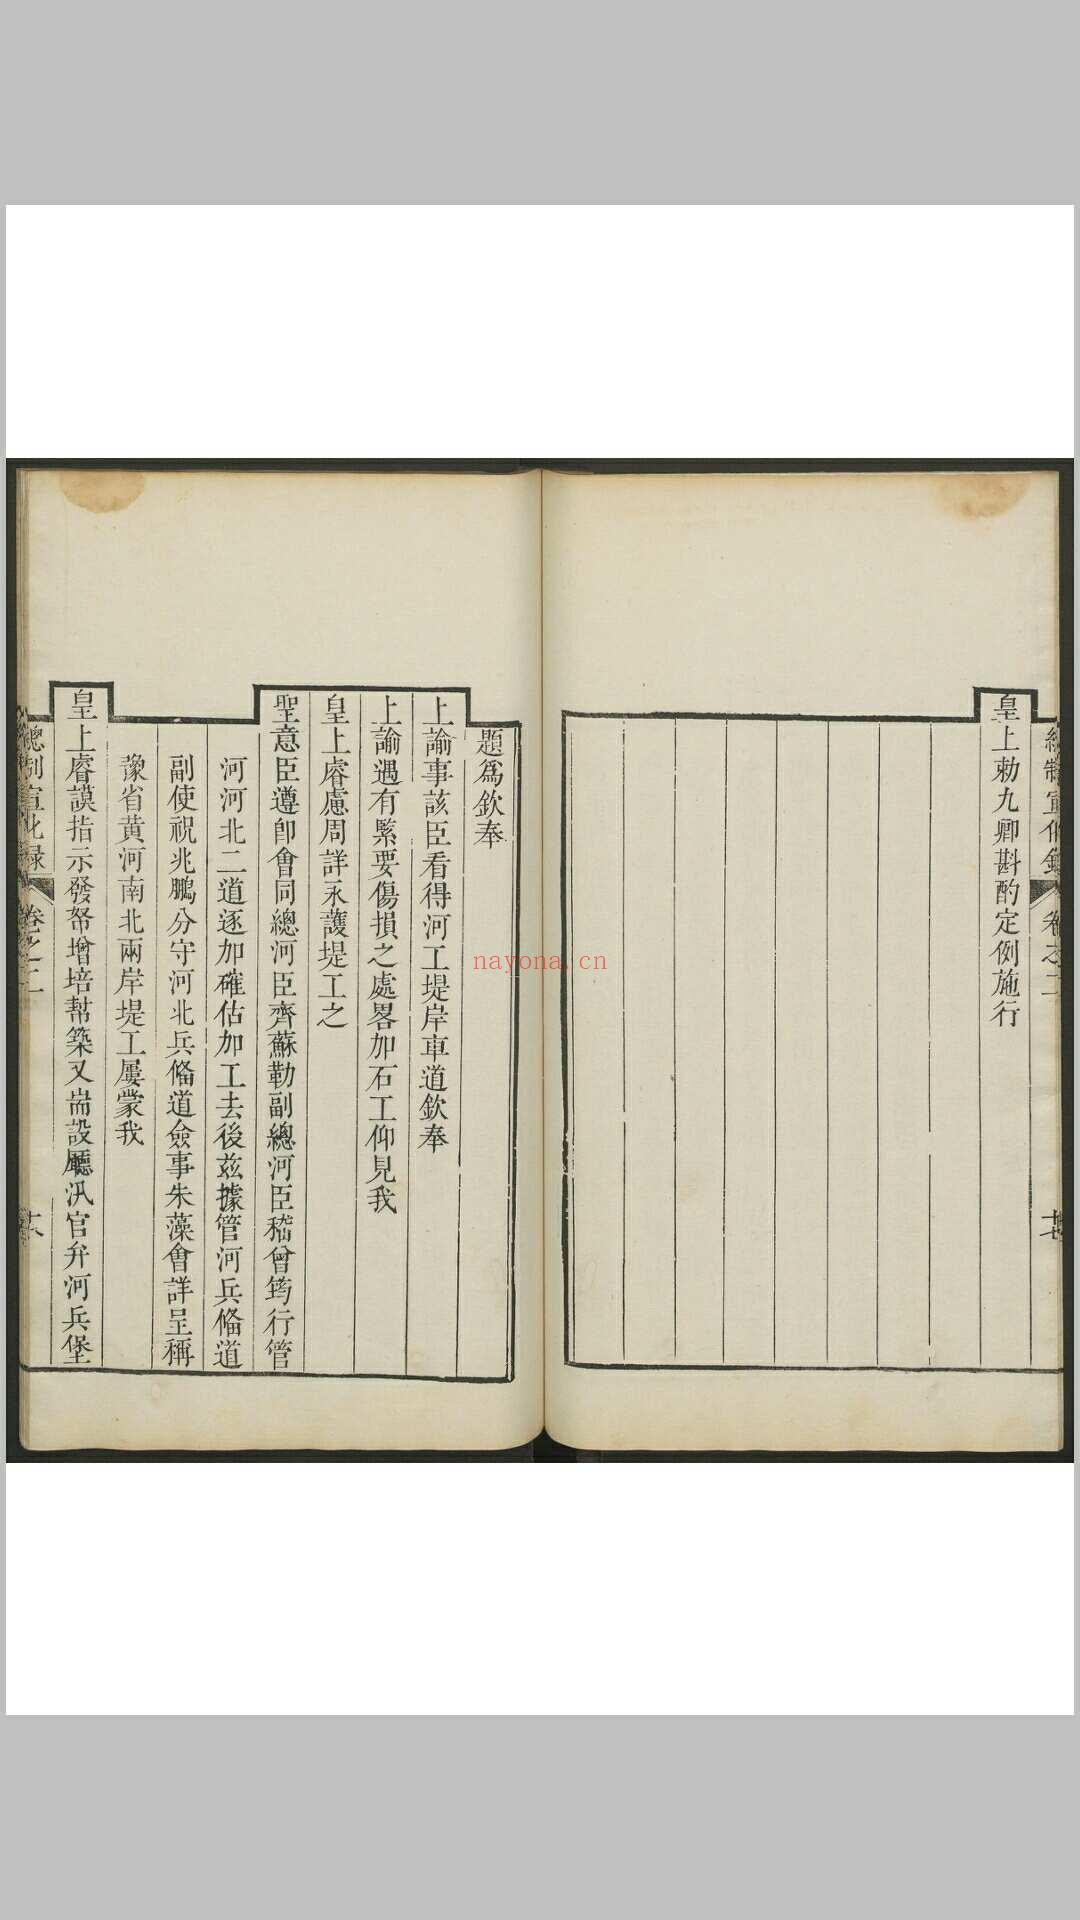 皇上勅九卿斟酌定例施行
卷之二
十七
題爲欽奉
上諭事該臣看得河工堤岸車道欽奉
上諭遇有緊要傷損之處畧加石工仰見我
皇上睿慮周詳永護堤工之
聖意臣遵卽會同總河臣齊蘇勒副總河臣嵇曾筠行管
河河北二道逐加確估加工去後玆據管河兵備道
副使祝兆鵬分守河北兵備道僉事朱藻會詳呈稱
豫省黄河南北兩岸堤工屢蒙我
皇上睿謨指示發帑增培幇築又耑設廳汛官弁河兵堡
總制宣化録
卷之二
十八
nayona.cn